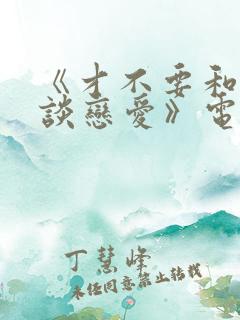 《才不要和
談戀愛》電
丁慧峰
未经同意禁止转载